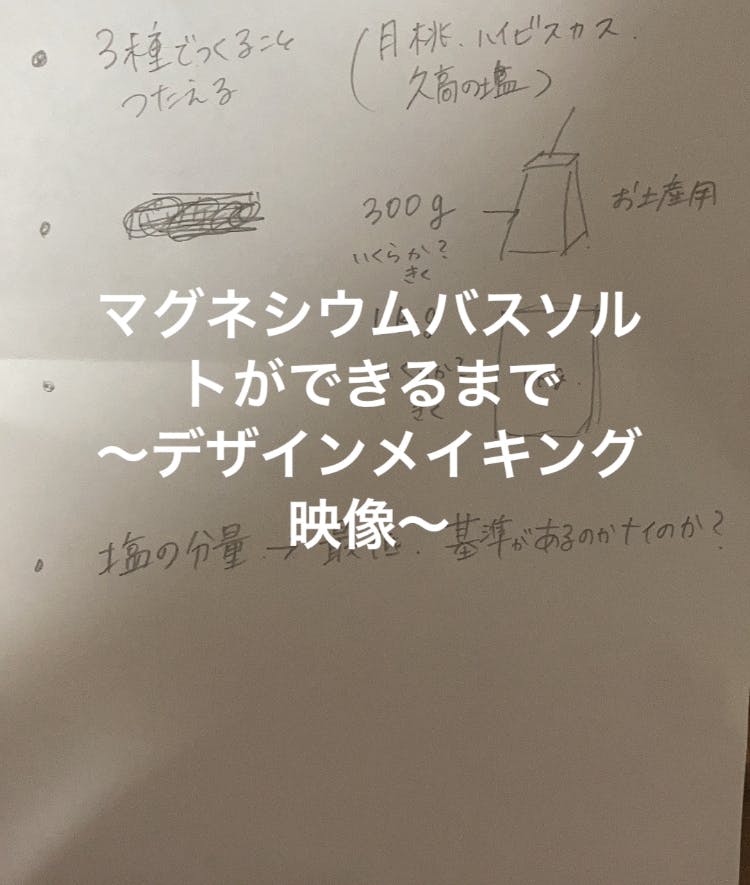 3種でつくること
つたえる
(月桃、ハイビスカス、
久高の塩)
300g
お土産用
いくらか?
きく
マグネシウムバスソル
トができるまで
〜デザインメイキング
映像〜
か?
きく
塩の分量→最低、基準があるのかナイのか?